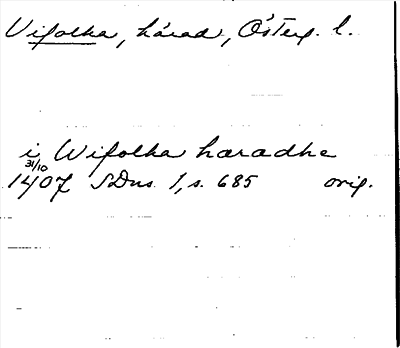 Vifolka, härad, Österg. l.
i Wifolka haradhe
31/10
1407 SDns 1, s. 685 orig.